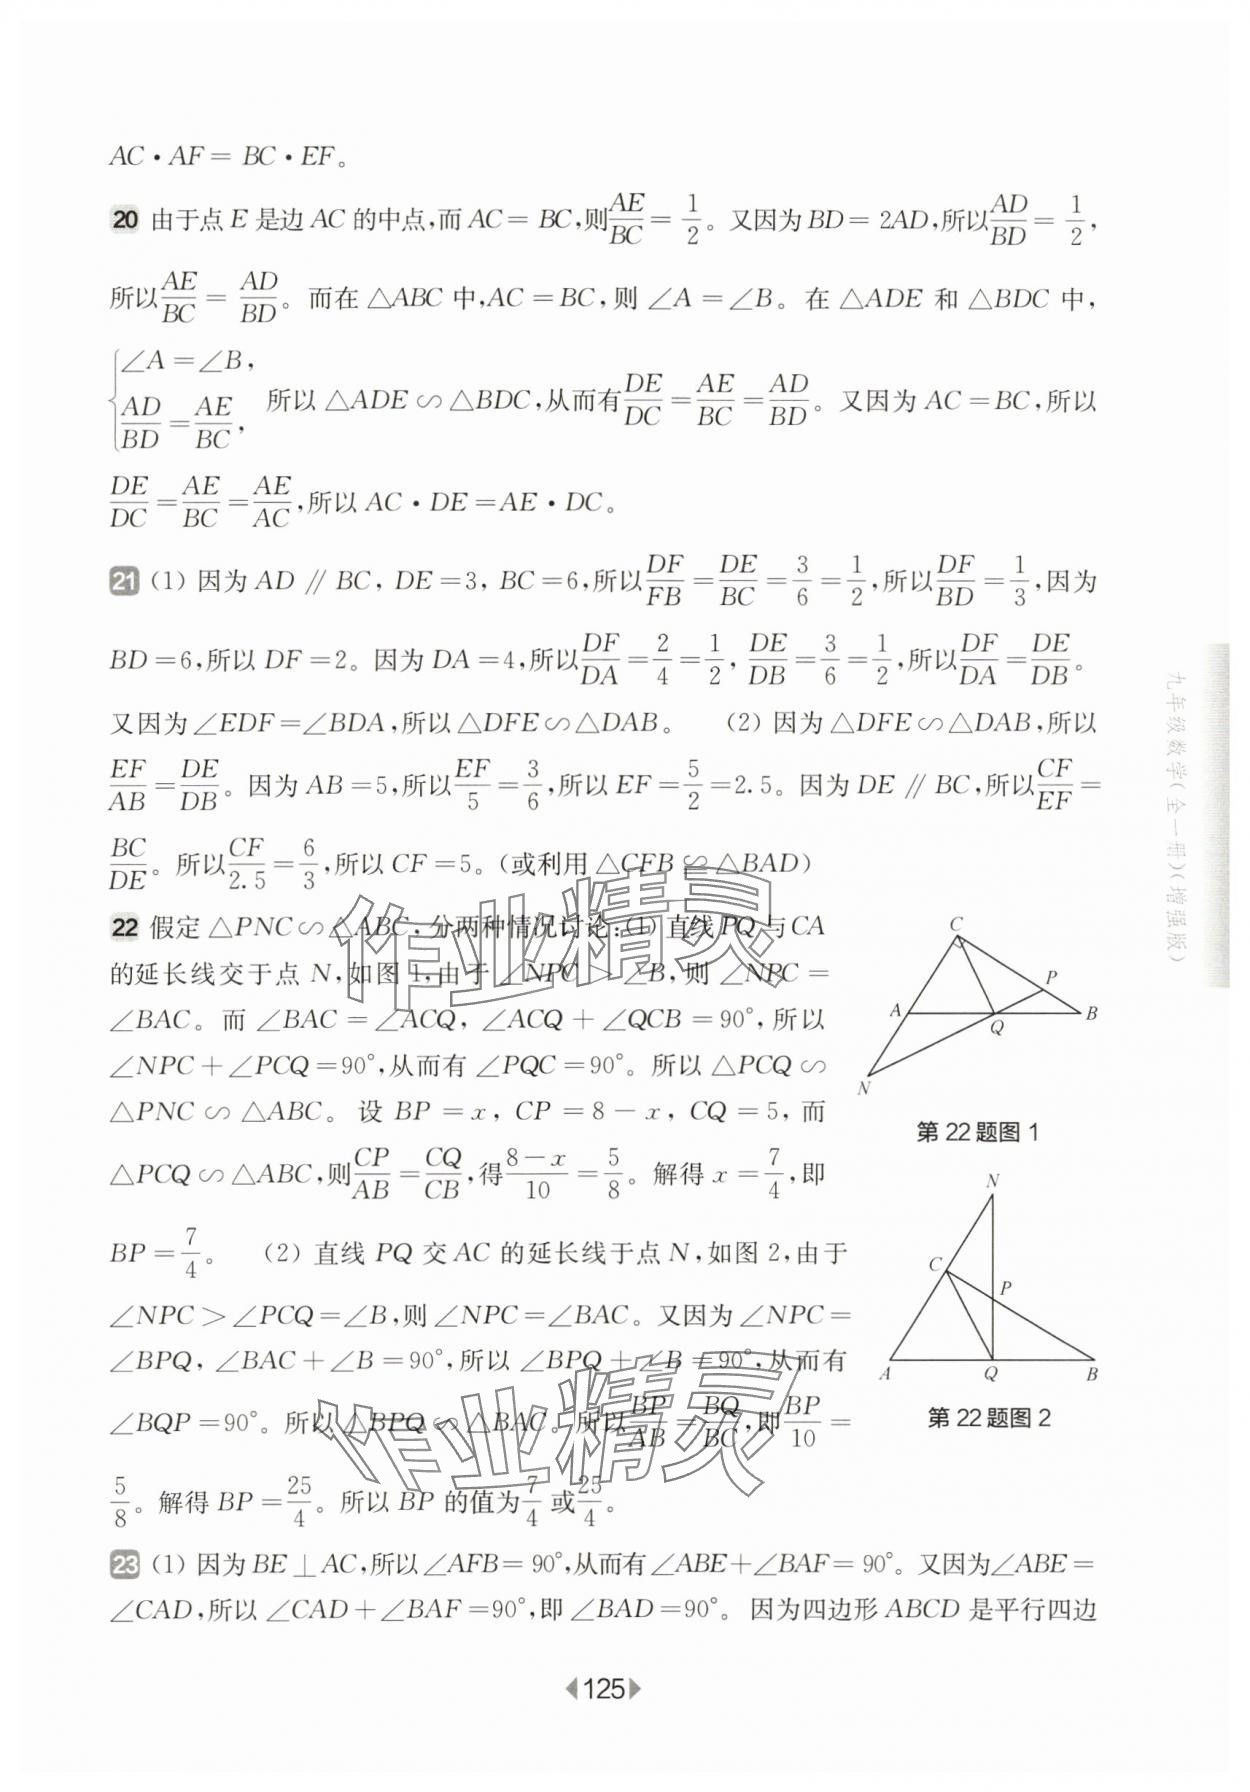 AC·AF= BC·EF。
20 由于点 E 是边 AC 的中点,而 AC= BC,则AE/BC=1/2。又因为 BD= 2AD,所以AD/BD=1/2,
所以AE/BC=AD/BD。而在 △ABC 中,AC=BC,则 ∠A=∠B。在 △ADE 和 △BDC 中,
{∠A=∠B, AD/BD=AE/BC, 所以 △ADE∽△BDC,从而有DE/DC=AE/BC=AD/BD。又因为 AC=BC,所以
DE/DC=AE/BC=AE/AC,所以 AC·DE=AE·DC。
21 (1) 因为 AD∥BC, DE=3, BC=6,所以DF/FB=DE/BC=3/6=1/2,所以DF/BD=1/3,因为
BD=6,所以 DF=2。因为 DA=4,所以DF/DA=2/4=1/2, DE/DB=3/6=1/2,所以DF/DA=DE/DB。
又因为∠EDF=∠BDA,所以△DFE∽△DAB。 (2) 因为△DFE∽△DAB,所以
EF/AB=DE/DB。因为 AB=5,所以EF/5=3/6,所以 EF=5/2=2.5。因为 DE∥BC,所以CF/EF=
BC/DE。所以CF/2.5=6/3,所以 CF=5。(或利用 △CFB∽△BAD)
22 假定 △PNC∽△ABC,分两种情况讨论:(1) 直线 PQ 与 CA
的延长线交于点 N,如图 1,由于 ∠NPC>∠B,则 ∠NPC=
∠BAC。而 ∠BAC=∠ACQ, ∠ACQ+∠QCB=90°,所以
∠NPC+∠PCQ=90°,从而有 ∠PQC=90°。所以 △PCQ∽
△PNC∽△ABC。设 BP=x, CP=8-x, CQ=5, 而
△PCQ∽△ABC,则CP/AB=CQ/CB,得8-x/10=5/8。解得 x=7/4,即
BP=7/4。 (2) 直线 PQ 交 AC 的延长线于点 N,如图 2,由于
∠NPC>∠PCQ=∠B,则 ∠NPC=∠BAC。又因为 ∠NPC=
∠BPQ, ∠BAC+∠B=90°,所以 ∠BPQ+∠B=90°,从而有
∠BQP=90°。所以 △BPQ∽△BAC。所以BP/AB=BQ/BC,即BP/10=
5/8。解得 BP=25/4。所以 BP 的值为7/4 或25/4。
23 (1) 因为 BE⊥AC,所以∠AFB=90°,从而有∠ABE+∠BAF=90°。又因为∠ABE=
∠CAD,所以 ∠CAD+∠BAF=90°,即 ∠BAD=90°。因为四边形 ABCD 是平行四边
C
P
A
Q
B
N
第22题图1
N
C
P
A
Q
B
第22题图2
九年级数学(全一册)(增强版)
作业精灵
作业精灵
125